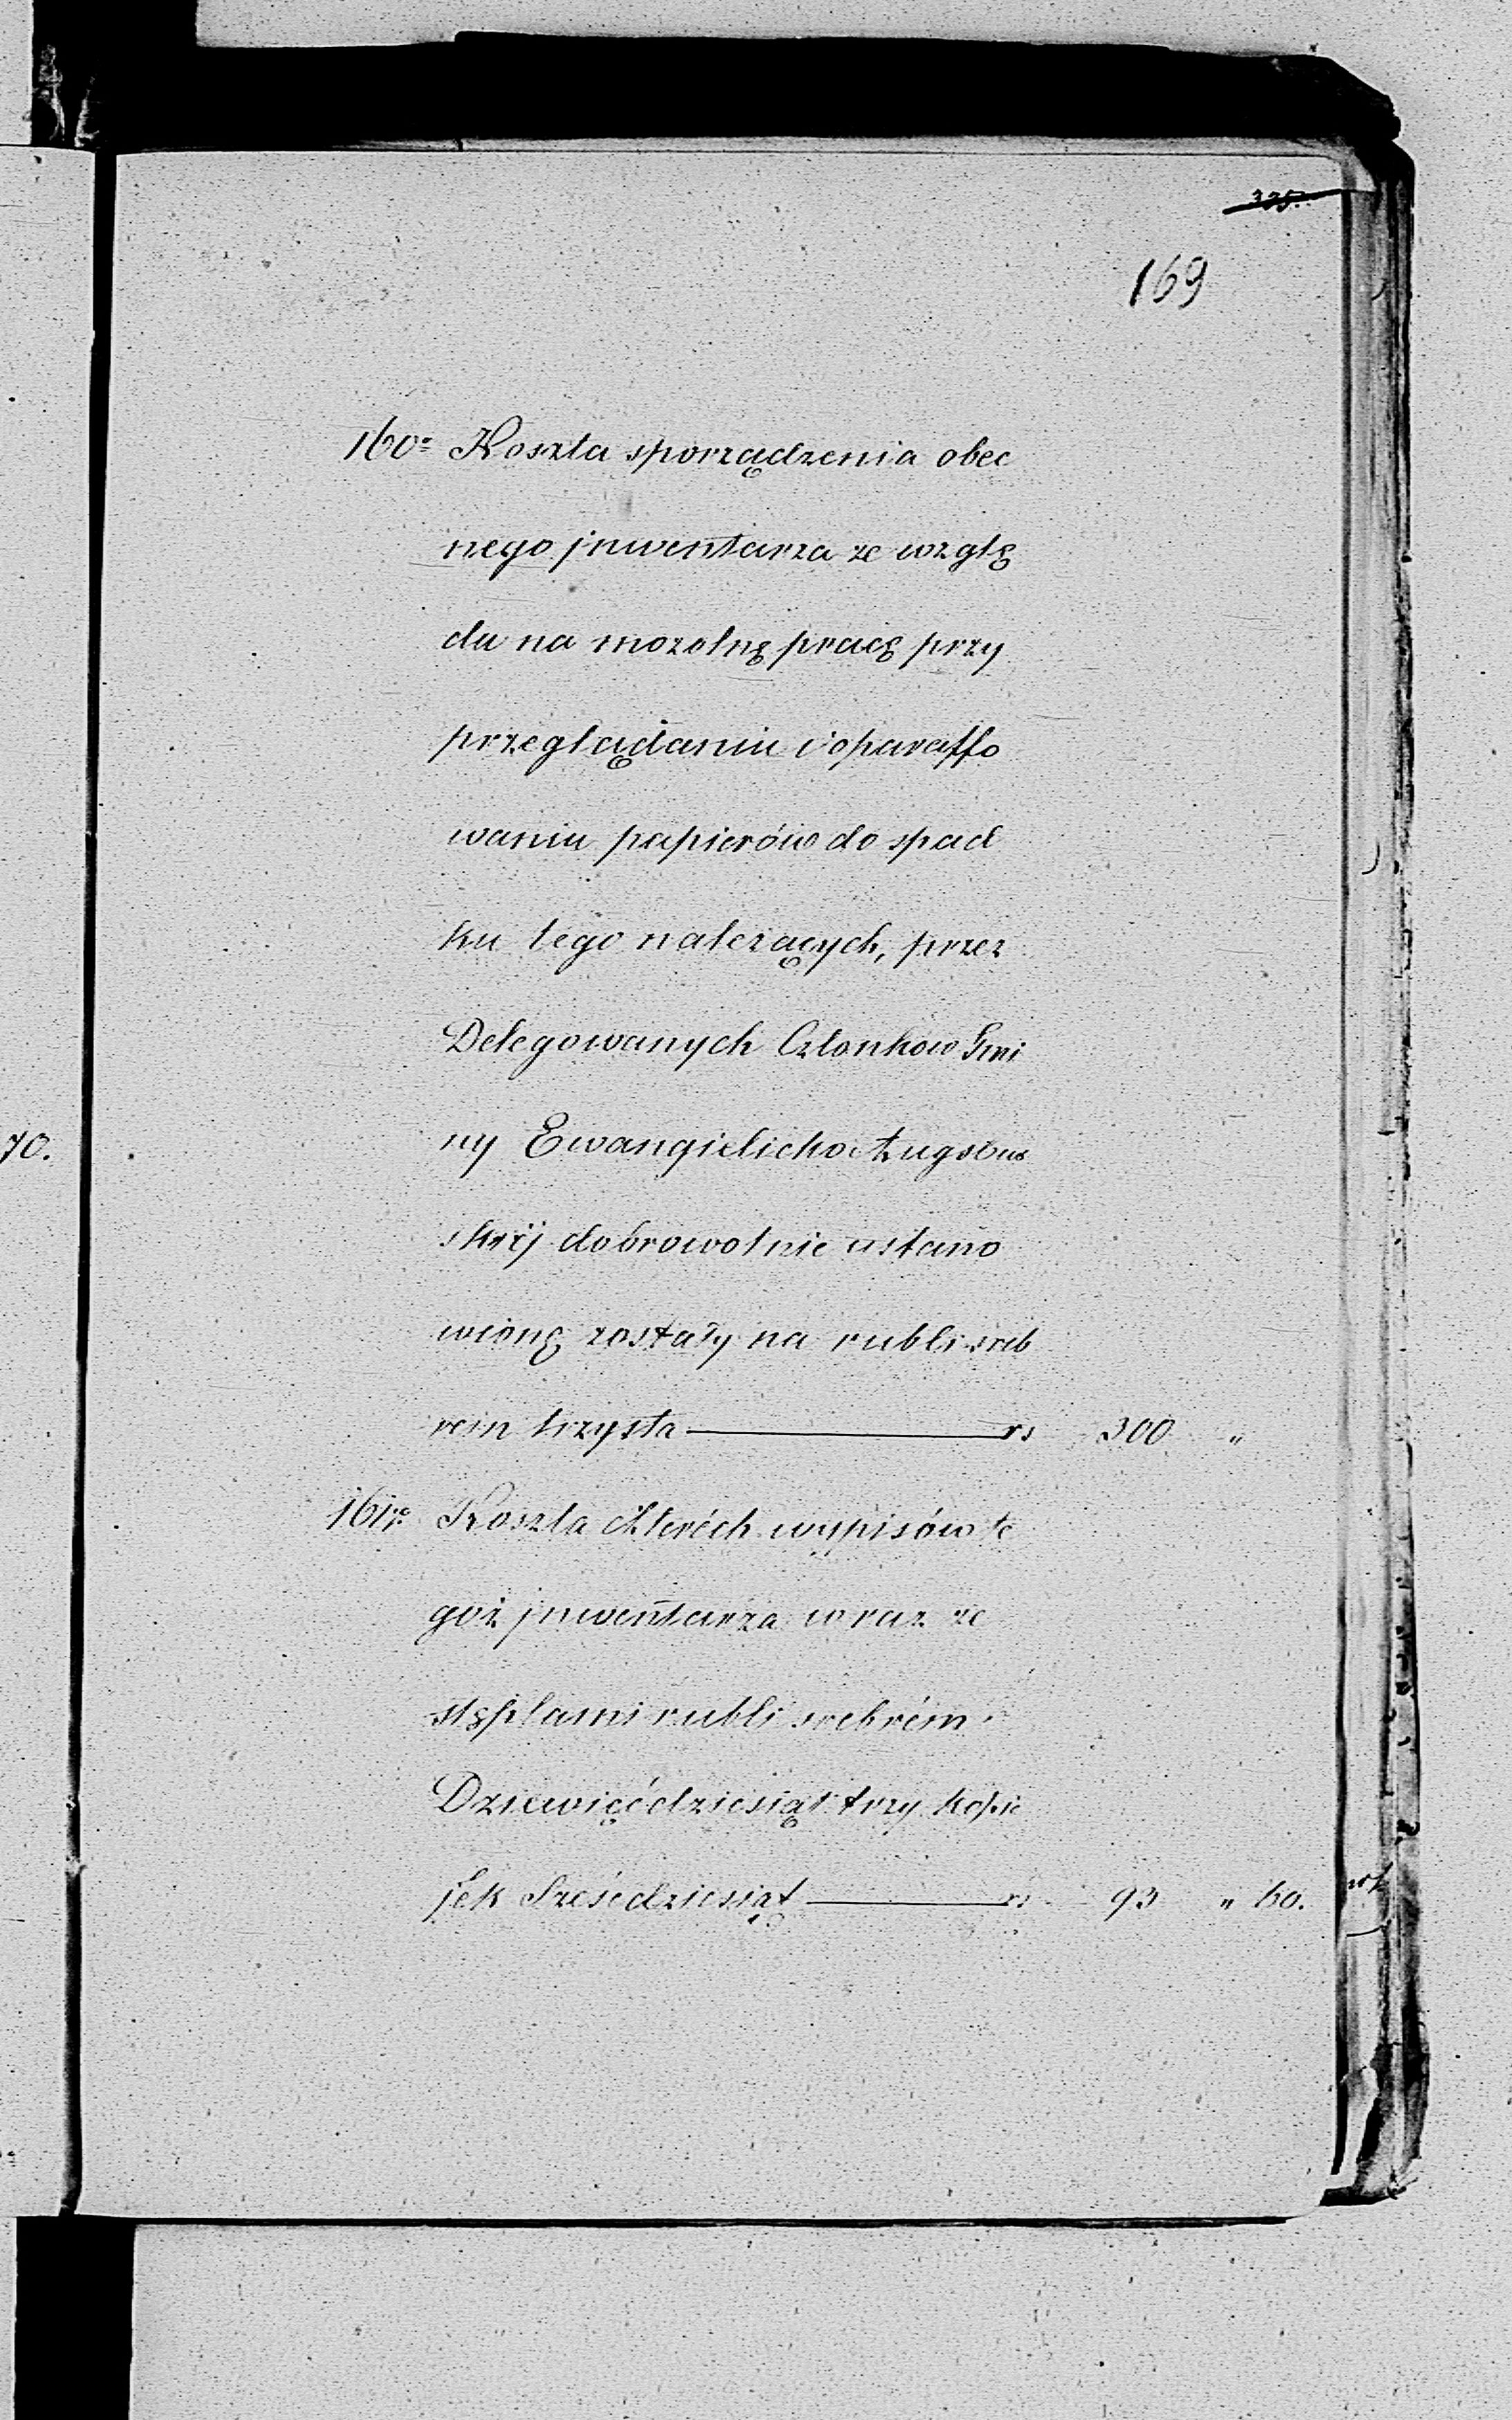 335.
169
160º Koszta sporządzenia obec
nego jnwentarza ze wzglę
du na mozolnę pracę przy
przeglądaniu i oparaffo
waniu papierów do spad
ku tego należących, przez
Delegowanych Członkow Gmi
ny Ewangielicko Augsbur
skiéj dobrowolnie ustano
wionę zostały na rubli sreb
rem trzysta rs 300 "
70.
161º Koszta czteréch wypisów te
goż jnwentarza wraz ze
stęplami rubli srebrém
Dziewięćdziesiąt trzy kopie
jek Sześćdziesiąt rs 93 " 60.